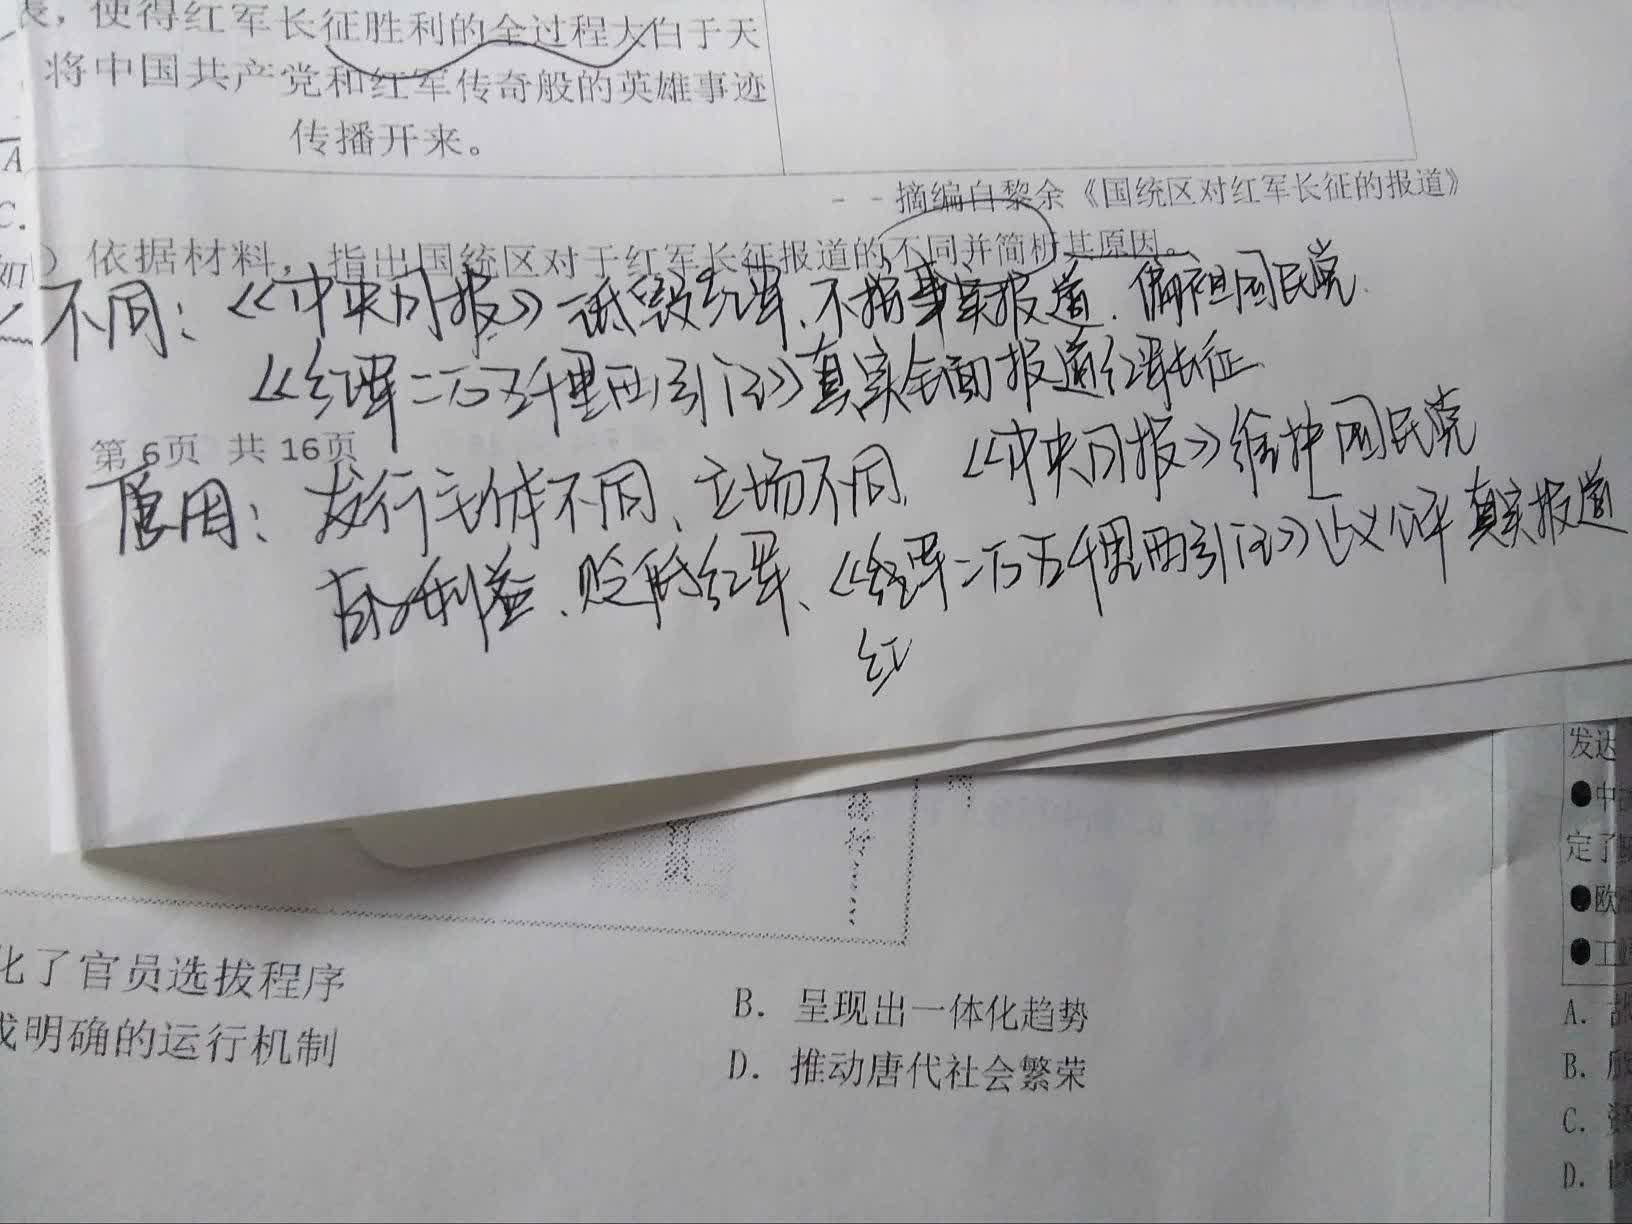 使得红军长征胜利的全过程大白于天
将中国共产党和红军传奇般的英雄事迹
传播开来。
A
C.
- - 摘编自黎余《国统区对红军长征的报道》
）依据材料，指出国统区对于红军长征报道的不同并简析其原因。
不同：《中央日报》诋毁红军、不按事实报道、偏袒国民党.
《红军二万五千里西引记》真实全面报道红军长征.
第 6页 共 16页
原因：发行主体不同、立场不同. 《中央日报》维护国民党
利益、贬低红军、《红军二万五千里西引记》正义公平 真实报道
红
发达
●中
定了
●欧
●工
化了官员选拔程序
B. 呈现出一体化趋势
成明确的运行机制
D. 推动唐代社会繁荣
A.
B.
C.
D.